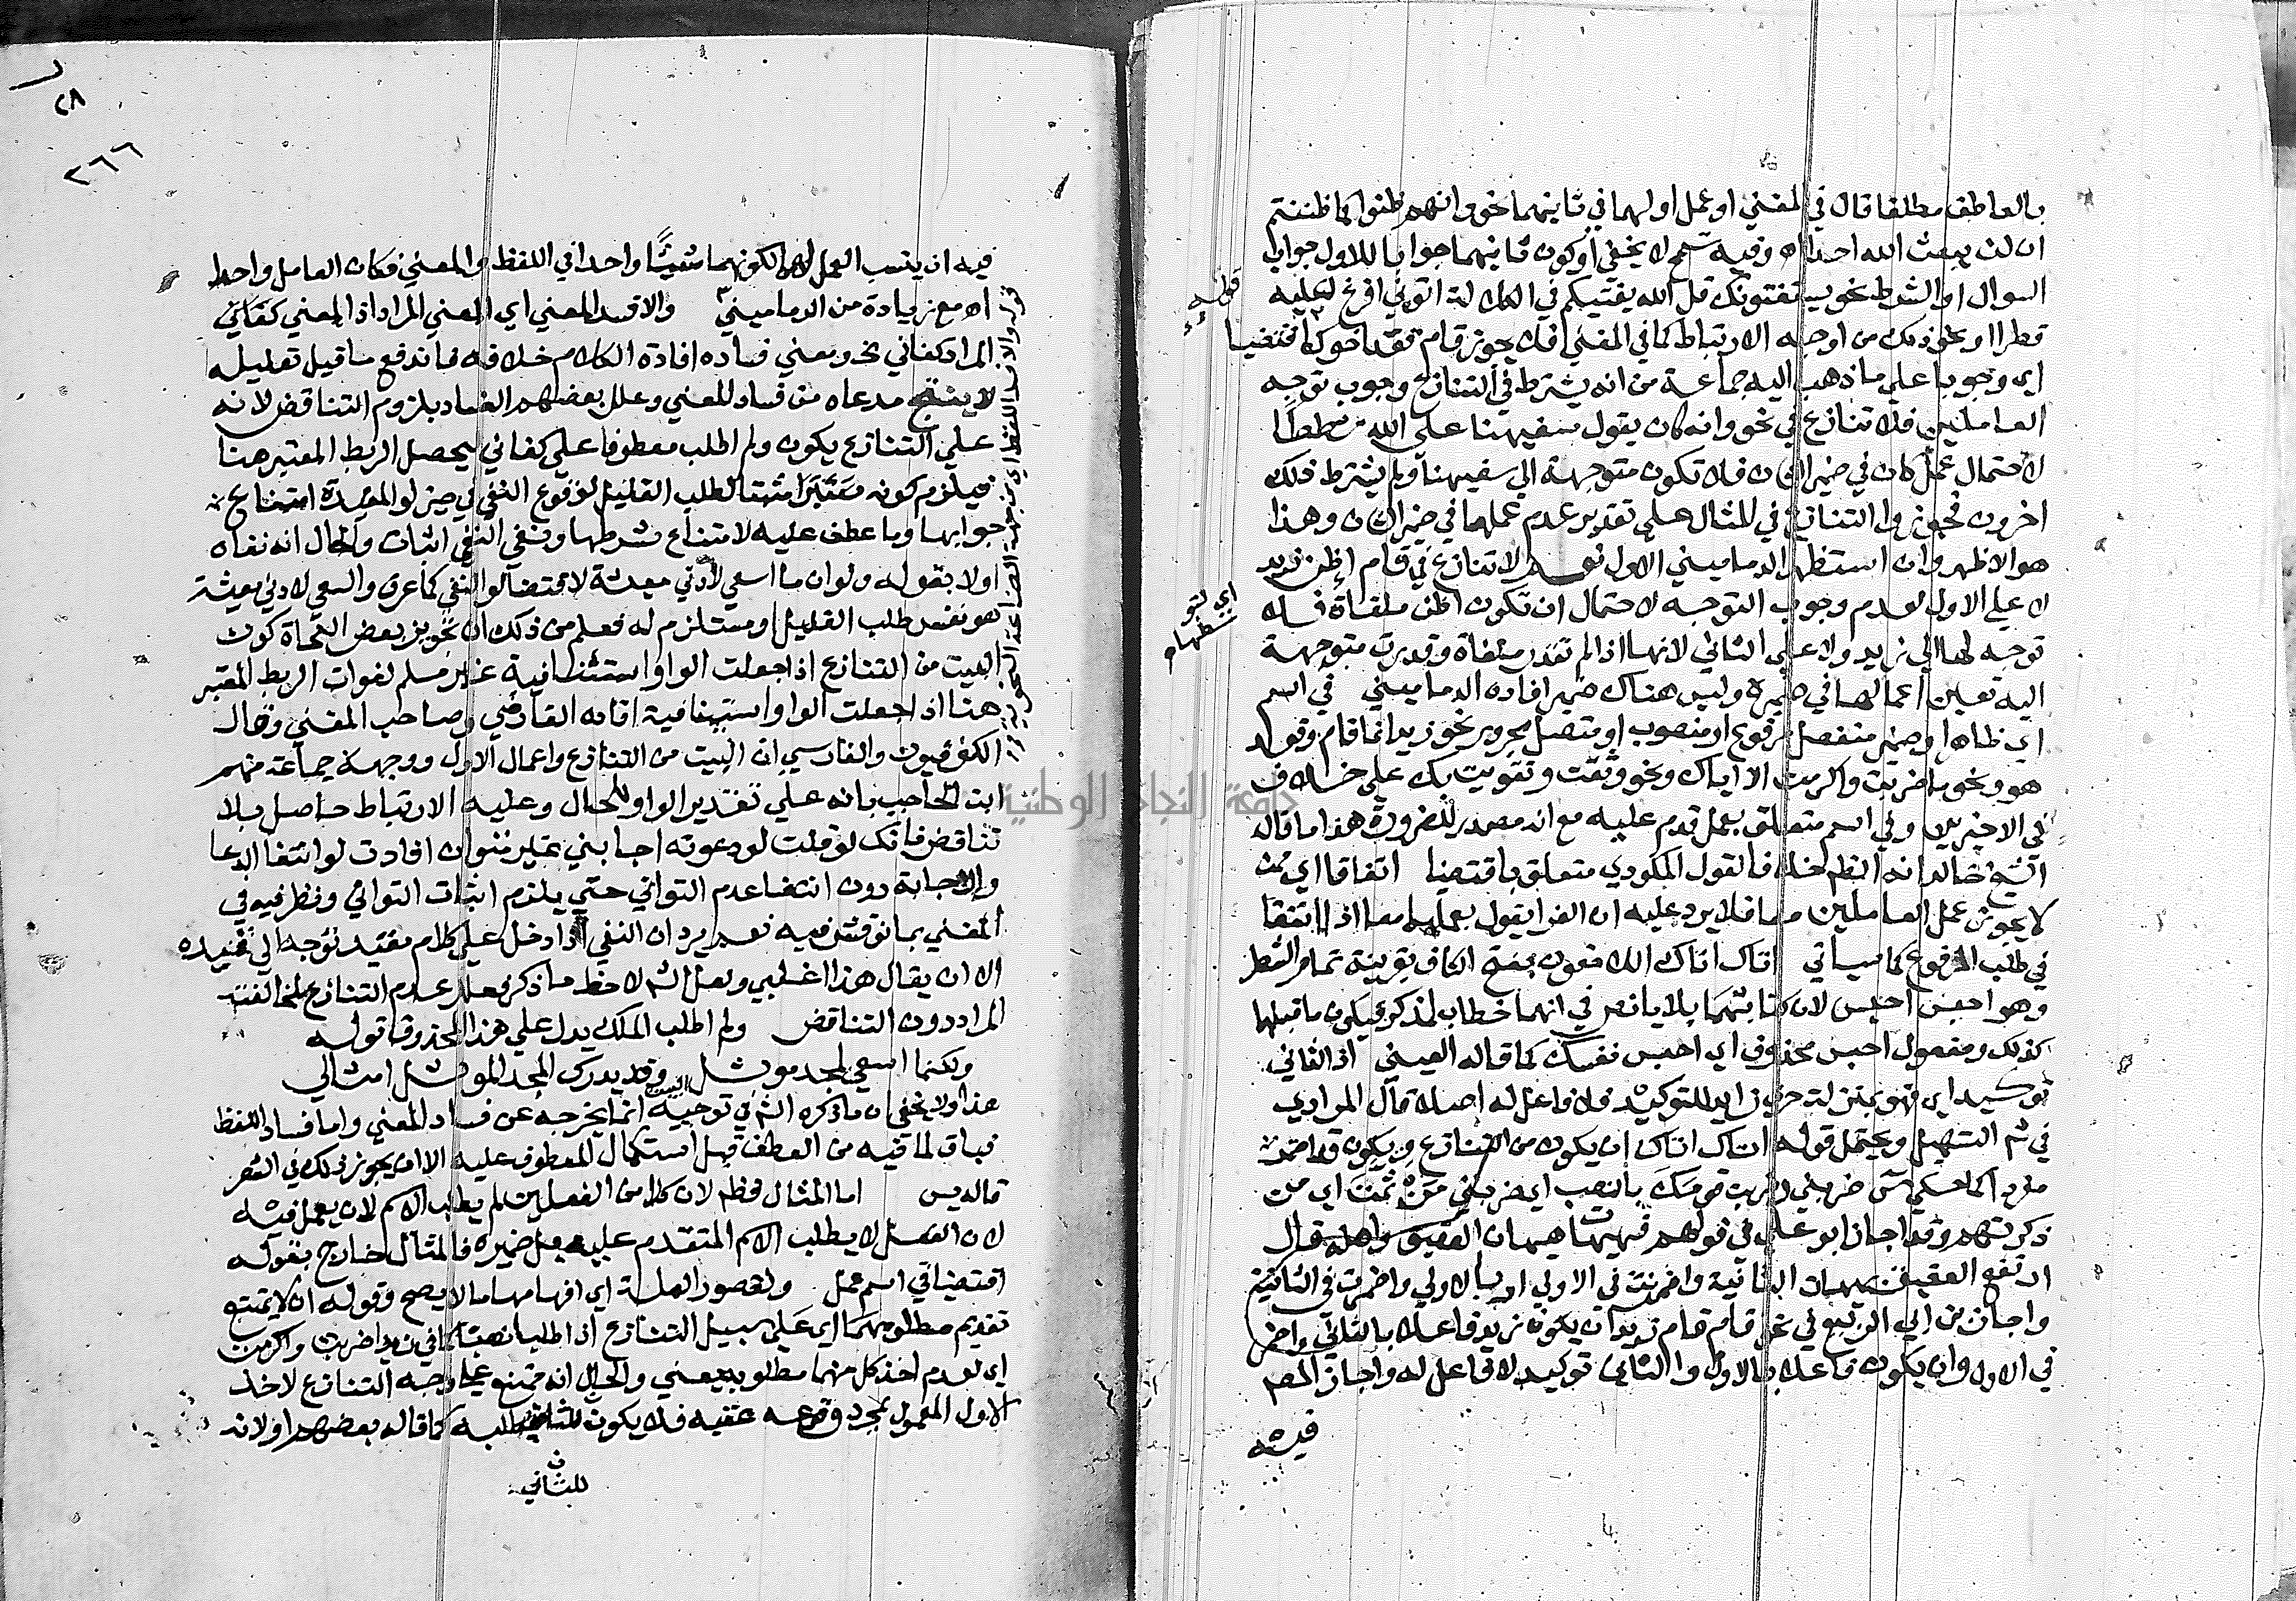 بالعاطف مطلقا قال في المغني او عمل اولهما في ثانيهما نحو وانهم ظنوا كما ظننتم
ان لن يبعث الله احدا اه وفيه تسمح لا يخفى او كون ثانيهما جوابا للاول جواب
السوال او الشرط نحو يستفتونك قل الله يفتيكم في الكلالة اتوني افرغ عليه
قوله
قطرا او نحو ذلك من اوجه الارتباط كما في المغني فلا يجوز قام قعد اخوك اقتضيا
اي وجوبا على ما ذهب اليه جماعة من انه يشترط في التنازع وجوب توجه
العاملين فلا تنازع في نحو وانه كان يقول سفيهنا على الله شططا
لاحتمال عمل كان في ضمير الشان فلا تكون متوجهة الى سفيهنا ولم يشترط ذلك
اخرون فجوزوا التنازع في المثال على تقدير عدم عملها في ضمير الشان وهذا
هو الاظهر وان استظهر الدماميني الاول نعم لا تنازع في قام اظن زيد
لا على الاول لعدم وجوب التوجه لاحتمال ان تكون اظن ملغاة فلا
توجه لها الى زيد ولا على الثاني لانها اذا لم تقدر ملغاة وقدرت متوجهة
اليه تعين اعمالها في ضميره وليس هناك ضمير افاده الدماميني في اسم
اي ظاهر او ضمير منفصل مرفوع او منصوب او متصل مجرور نحو زيد انما قام وقعد
هو ونحو ما ضربت واكرمت الا اياك ونحو وثقت وتقويت بك على خلاف
في الاخيرين وفي اسم متعلق بعمل قدم عليه مع انه مصدر للضرورة هذا ما قاله
الشيخ خالد انه النظم خلافا لقول المكودي متعلق باقتضيا اتفاقا اي
لا يجوز عمل العاملين معا فلا يرد عليه ان الفرا يقول بعملهما معا اذا اتفقا
في طلب المرفوع كما سياتي اتاك اتاك اللاحقون بفتح الكاف بقرينة تمام الشطر
وهو احبس احبس لان كتابتهما بلا يا نص في انهما خطاب لمذكر فيكون ما قبلها
كذلك ومفعول احبس محذوف اي احبس نفسك كما قاله العيني اذ الثاني
توكيد اي فهو بمنزلة حرف زايد للتوكيد فلا فاعل له اصلا قال المرادي
في شرح التسهيل ويحتمل قوله اتاك اتاك ان يكون من التنازع ويكون قد اضمر
مفردا كما حكى س ضربني وضربت قومك بالنصب اي ضربني من ثم اي من
ذكرتهم وقد اجاز ابو علي في قولهم فهيهات هيهات العقيق واهله قال
ارتفع العقيق بهيهات الثانية واضمرت في الاولى او بالاولى واضمرت في الثانية
واجاز ابن ابي الربيع في نحو قام قام زيد ان يكون زيد فاعلا بالثاني واضمر
في الاول وان يكون فاعلا بالاول والثاني توكيد لا فاعل له واجاز المصـ
فيه
٢٦٦
فيه ان ينسب العمل لهما لكونهما شيئا واحدا في اللفظ والمعنى فكان العامل واحد
اه مع زيادة من الدماميني والافسد المعنى اي المعنى المراد اذ المعنى كفاني
المراد كفاني نحو ومعنى فساده افادة الكلام خلافه فاندفع ما قيل تعليله
لا ينتج مدعاه من فساد المعنى وعلل بعضهم الفساد بلزوم التناقض لانه
على التنازع يكون ولم اطلب معطوفا على كفاني ليحصل الربط المعتبر هنا
فيلزم كونه مثبتا لطلب القليل لوقوع النفي في حيز لو المفيدة امتناع
جوابها وما عطف عليه لامتناع شرطها ونفي النفي اثبات والحال انه نفاه
اولا بقوله ولو ان ما اسعى لادنى معيشة لاقتضا لو النفي كما عرف والسعي لادنى معيشة
هو نفس طلب القليل او مستلزم له فعلم من ذلك ان تجويز بعض النحاة كون
البيت من التنازع اذا جعلت الواو استئنافية غير مسلم لفوات الربط المعتبر
هنا اذا جعلت الواو استئنافية افاده الفارضي وصاحب المغني وقال
الكوفيون والفارسي ان البيت من التنازع واعمال الاول ووجهه جماعة منهم
ابن الحاجب بانه على تقدير الواو للحال وعليه الارتباط حاصل بلا
تناقض فانك لو قلت لو دعوته اجابني غير متوان افادت لو انتفا الدعا
والاجابة دون انتفا عدم التواني حتى يلزم اثبات التواني ونظر فيه في
المغني بما نوقش فيه نعم يرد ان النفي اذا دخل على كلام مقيد توجه الى قيده
الا ان يقال هذا اغلبي ولعل الشـ لاحظ ما ذكر فعلل عدم التنازع بمخالفته
المراد دون التناقض ولم اطلب الملك يدل على هذا المحذوف قوله
ولكنما اسعى لمجد موثل وقد يدرك المجد الموثل امثالي
هذا ولا يخفى ان ما ذكره الشـ في توجيه البيت انما يخرجه عن فساد المعنى واما فساد اللفظ
فباق لما فيه من العطف قبل استكمال المعطوف عليه الا ان يجوز ذلك في الشعر
قاله يس اما المثال فظهر لان كلا من الفعلين لم يطلب الاسم لان يعمل فيه
لان الفعل لا يطلب الاسم المتقدم عليه بل ضميره فالمثال خارج بقوله
اقتضيا في اسم عمل ولقصور العلة اي افهامها ما لا يصح وقوله ان لا يمتنع
تقديم مطلوبهما اي على سبيل التنازع اذا طلبا نصبا كما في زيدا ضربت واكرمت
اي لعدم اخذ كل منهما مطلوبه يعني والحال انه ممتنع على وجه التنازع لاخذ
الاول المعمول بمجرد وقوعه عقيبه فلا يكون للثاني طلبه كما قاله بعضهم او لانه
للثاني
جامعة النجاح الوطنية